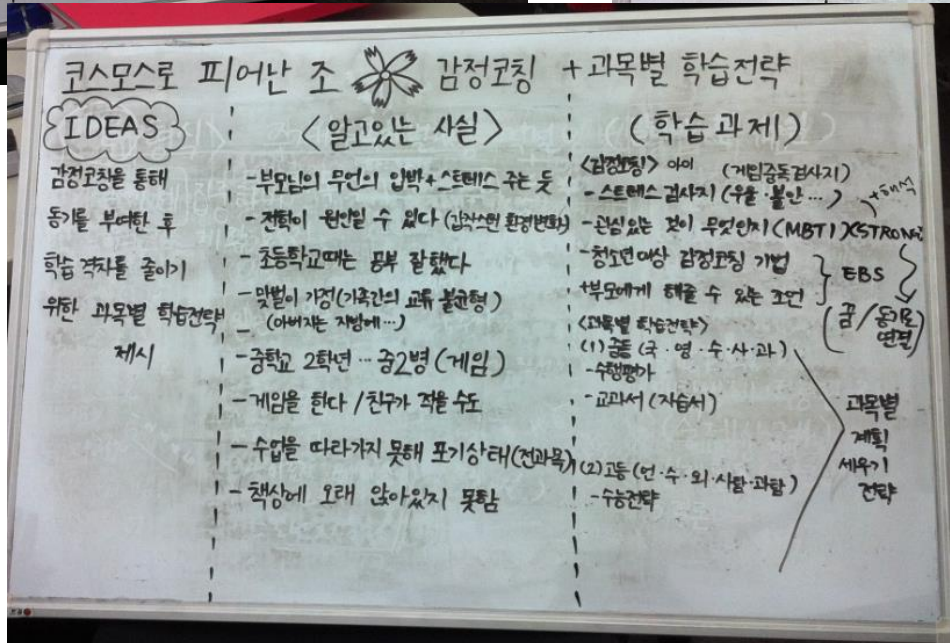 코스모스로 피어난 조 감정코칭 + 과목별 학습전략
IDEAS
감정코칭을 통해
동기를 부여한 후
학습 격차를 줄이기
위한 과목별 학습전략
제시
<알고있는 사실>
- 부모님의 무언의 압박 + 스트레스 주는 듯
- 전학이 원인일 수 있다 (갑작스런 환경변화)
- 초등학교때는 공부 잘했다
- 맞벌이 가정(가족간의 교류 불균형)
(아버지는 지방에…)
- 중학교 2학년 … 중2병 (게임)
- 게임을 한다 / 친구가 적을 수도
- 수업을 따라가지 못해 포기상태(전과목)
- 책상에 오래 앉아있지 못함
(학습과제)
<감정코칭> 아이 (게임중독검사지)
- 스트레스 검사지 (우울·불안 …) +해석
- 관심있는 것이 무엇인지 (MBTI)(STRONG)
- 청소년대상 감정코칭 기법
+부모에게 해줄 수 있는 조언
EBS
(꿈/동기로
연결)
<과목별 학습전략>
(1) 중등 (국·영·수·사·과)
- 수행평가
- 교과서 (자습서)
(2) 고등 (언·수·외·사탐·과탐)
- 수능전략
과목별
계획
세우기
전략